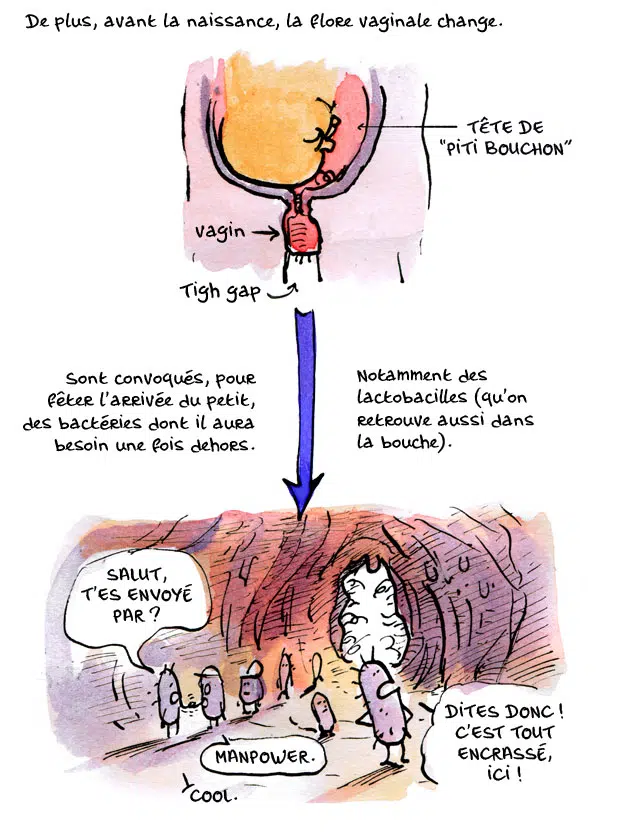 De plus, avant la naissance, la flore vaginale change.
TÊTE DE
"PITI BOUCHON"
vagin
Tigh gap
Sont convoqués, pour
fêter l'arrivée du petit,
des bactéries dont il aura
besoin une fois dehors.
Notamment des
lactobacilles (qu'on
retrouve aussi dans
la bouche).
SALUT,
T'ES ENVOYÉ
PAR ?
MANPOWER.
COOL.
DITES DONC !
C'EST TOUT
ENCRASSÉ,
ICI !